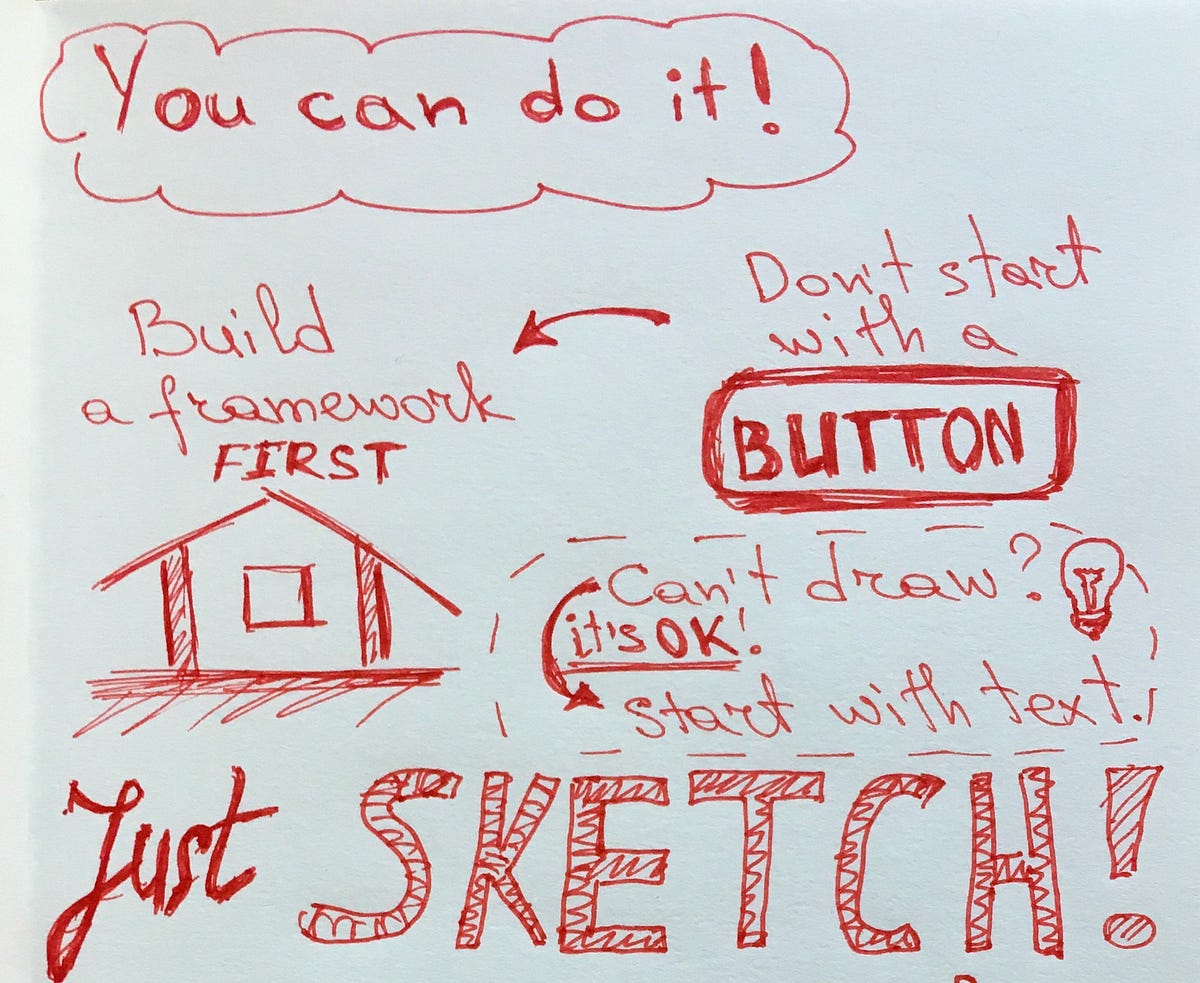 You can do it!
Don't start
with a
BUTTON
Build
a framework
FIRST
Can't draw?
it's OK!
start with text.
Just SKETCH!